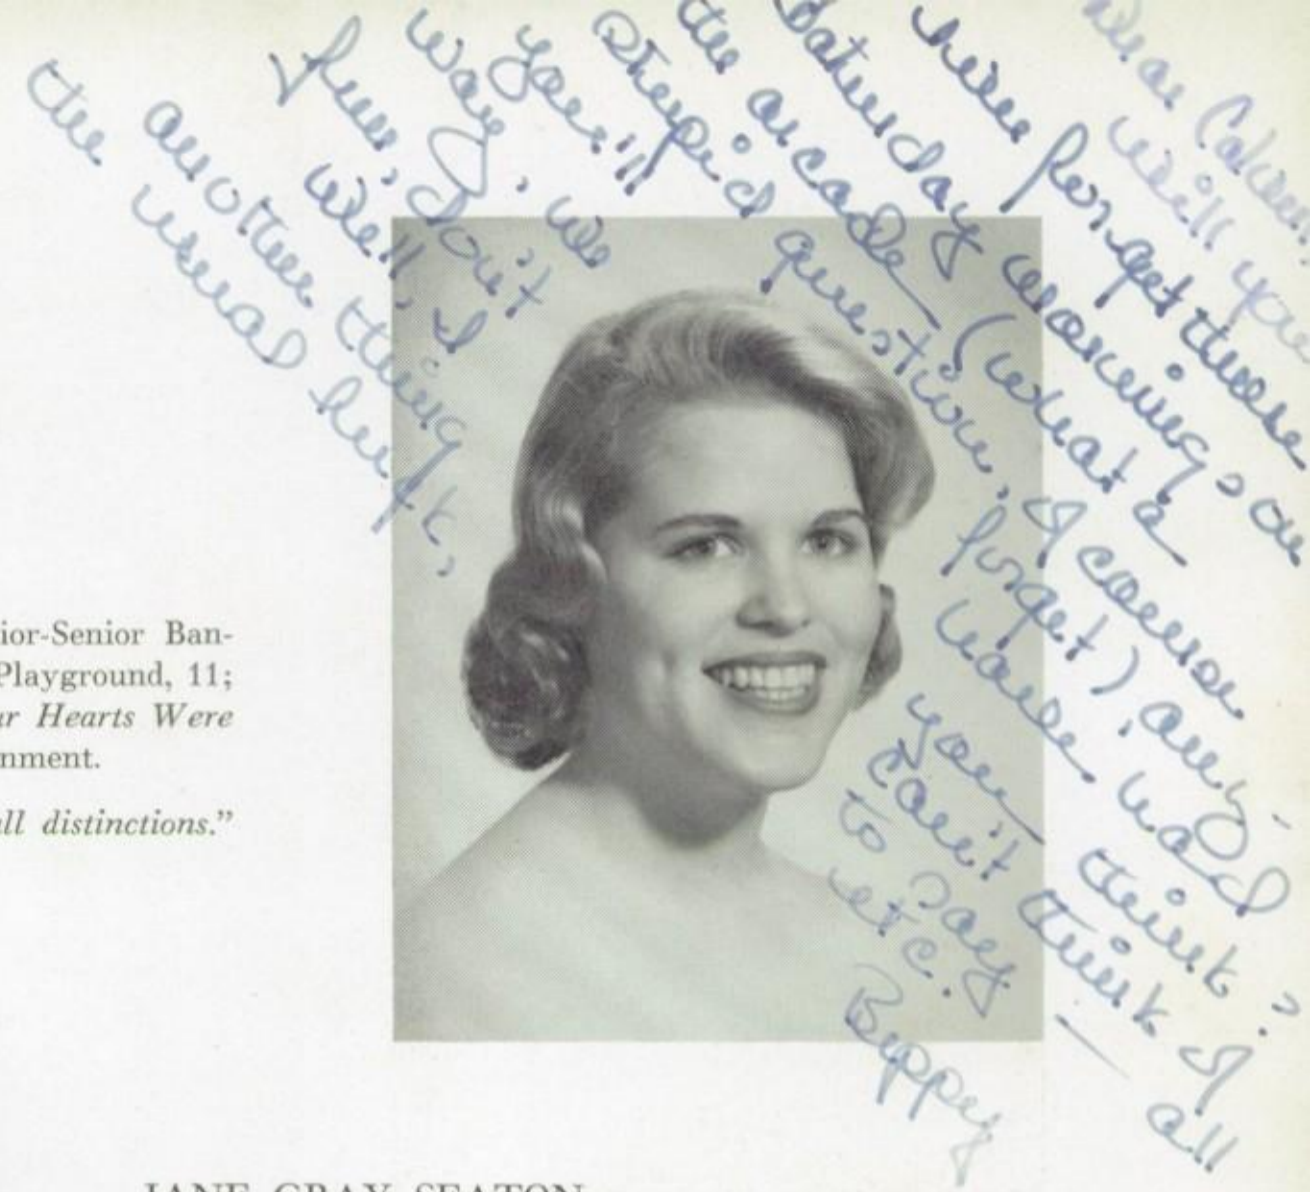 Dear
will you
forget those
Saturday mornings on
the arcade (what a
stupid question, of course
you'll forget), any-
way, we have had
fun, don't you think?
Well, I can't think of
another thing to say — all
the usual etc.
ior-Senior Ban-
Playground, 11;
ur Hearts Were
nment.
ll distinctions.”
JANE GRAY SEATON